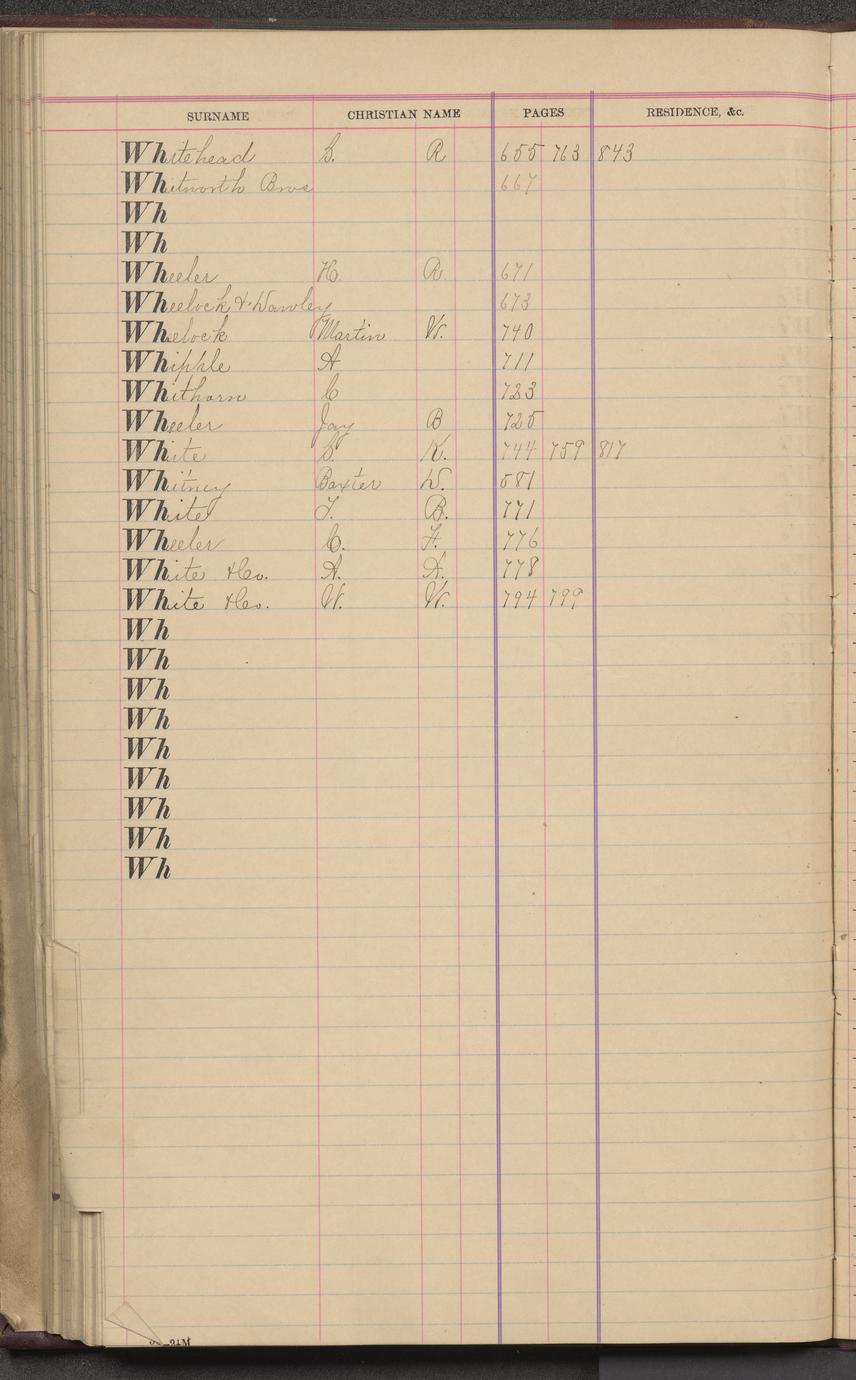 SURNAME CHRISTIAN NAME PAGES RESIDENCE, &c.
Whitehead S. R 655 763 843
Whitworth Bros 667
Wh
Wh
Wheeler H. R. 671
Wheelock & Dawley 673
Wheelock Martin W. 740
Whipple A 711
Whithorn C 723
Wheeler Jay B 725
White S. K. 744 759 817
Whitney Baxter D. 581
White J. B. 771
Wheeler C. F. 776
White & Co. A. A. 778
White & Co. W. W. 794 799
Wh
Wh
Wh
Wh
Wh
Wh
Wh
Wh
Wh